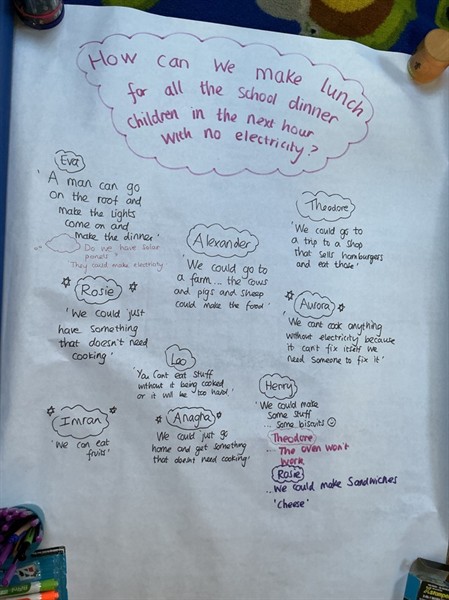 How can we make lunch
for all the school dinner
children in the next hour
with no electricity?
Eva
'A man can go
on the roof and
make the lights
come on and
make the dinner'
Do we have solar
panels?
They could make electricity
Theodore
'We could go to
a trip to a shop
that sells hamburgers
and eat those'
Alexander
'We could go to
a farm... the cows
and pigs and sheep
could make the food'
Rosie
'We could just
have something
that doesn't need
cooking'
Aurora
'We cant cook anything
without electricity because
it can't fix itself we
need someone to fix it'
Leo
'You cant eat stuff
without it being cooked
or it will be too hard'
Henry
'We could make
some stuff
... some biscuits
Theodore
... The oven won't
work
Rosie
...We could make Sandwiches
'cheese'
Imran
'We can eat
fruits'
Anagha
'We could just go
home and get something
that doesnt need cooking'